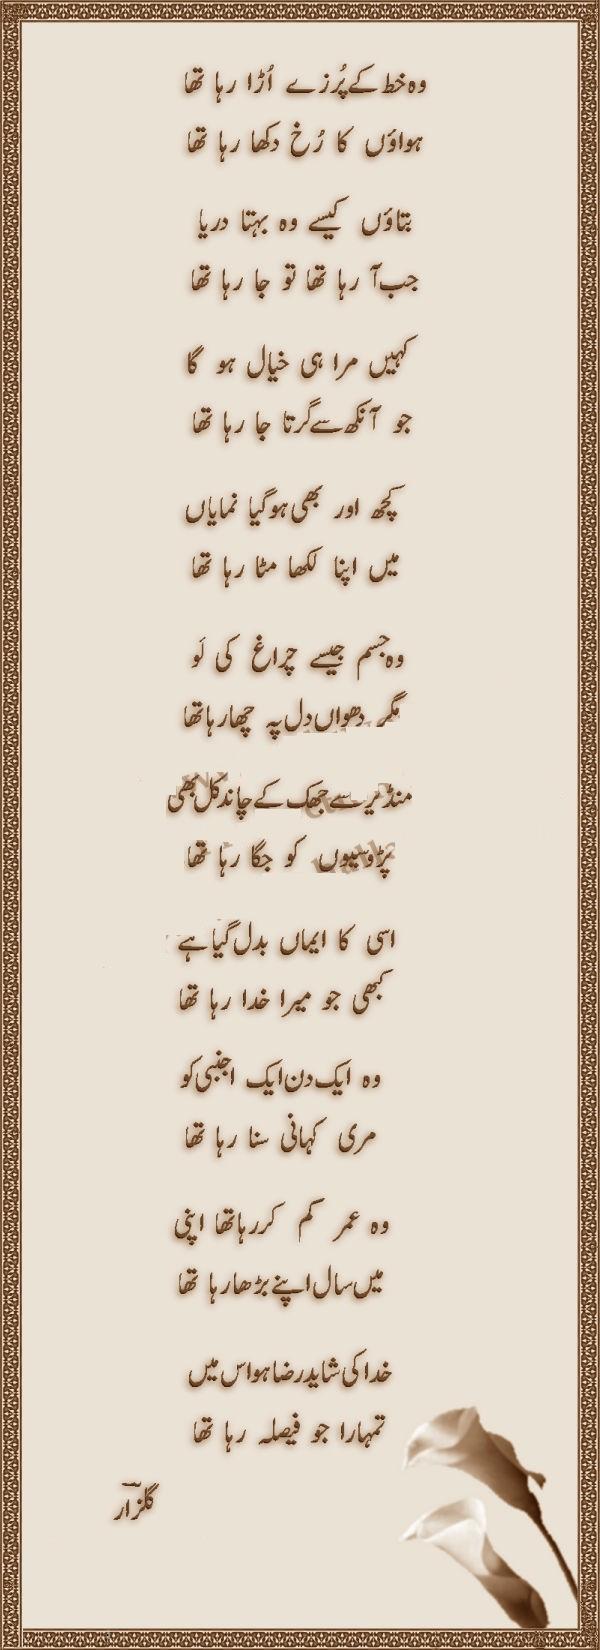 وہ خط کے پُرزے اُڑا رہا تھا
ہواؤں کا رُخ دکھا رہا تھا
بتاؤں کیسے وہ بہتا دریا
جب آ رہا تھا تو جا رہا تھا
کہیں مرا ہی خیال ہو گا
جو آنکھ سے گرتا جا رہا تھا
کچھ اور بھی ہو گیا نمایاں
میں اپنا لکھا مٹا رہا تھا
وہ جسم جیسے چراغ کی لَو
مگر دھواں دل پہ چھا رہا تھا
منڈیر سے جھک کے چاند کل بھی
پڑوسیوں کو جگا رہا تھا
اسی کا ایماں بدل گیا ہے
کبھی جو میرا خدا رہا تھا
وہ ایک دن ایک اجنبی کو
مری کہانی سنا رہا تھا
وہ عمر کم کر رہا تھا اپنی
میں سال اپنے بڑھا رہا تھا
خدا کی شاید رضا ہو اس میں
تمہارا جو فیصلہ رہا تھا
گلزار